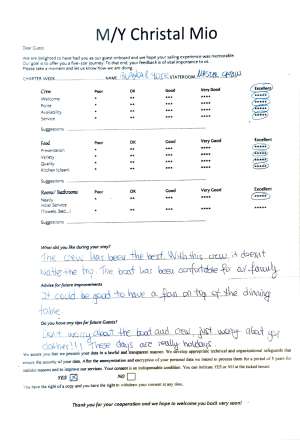 M/Y Christal Mio
Dear Guest
We are delighted to have had you as our guest onboard and we hope your sailing experience was memorable.
Our goal is to offer you a five-star journey. To that end, your feedback is of vital importance to us.
Please take a moment and let us know how we are doing.
CHARTER WEEK NAME STATEROOM
Crew Poor OK Good Very Good Excellent
Welcome * ** *** **** *****
* ** *** **** *****
Availability * ** *** **** *****
Service * ** *** **** *****
Suggestions
Food Poor OK Good Very Good Excellent
Presentation * ** *** **** *****
Variety * ** *** **** *****
Quality * ** *** **** *****
Kitchen * ** *** **** *****
Suggestions
Rooms/ Bathrooms Poor OK Good Very Good Excellent
* ** *** **** *****
Hotel Service
(Towels, Bed...) * ** *** **** *****
Suggestions
What did you like during your stay?
The crew has been the best. With this crew it doesn't
matter the trip. The boat has been comfortable for a family
Advice for future improvements
It could be good to have a fan on top of the dinning
table
Do you have any tips for future Guests?
Don't worry about the boat and crew, just worry about your
clothes!!! These days are really holidays.
We assure you that we process your data in a lawful and transparent manner. We develop appropriate technical and organizational safeguards that
ensure the security of your data. After the anonymization and encryption of your personal data we intend to process them for a period of 5 years for
statistic reasons and to improve our services. Your consent is an indispensable condition. You can indicate YES or NO at the ticked forms:
YES NO
You have the right of a copy and you have the right to withdraw your consent at any time.
Thank you for your cooperation and we hope to welcome you back very soon!